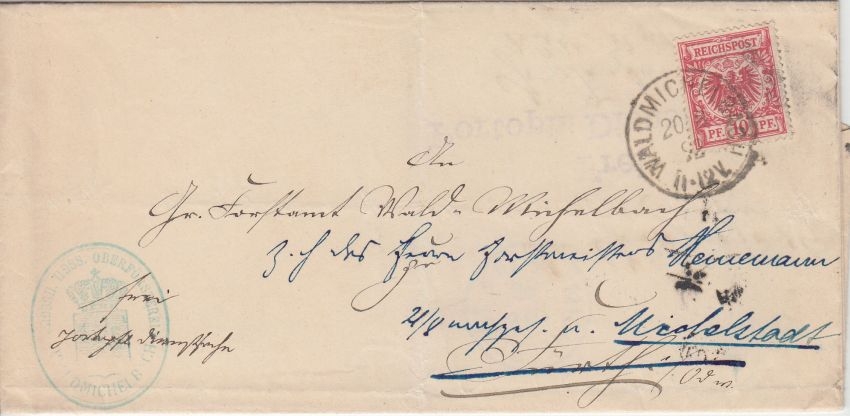 REICHSPOST
PF. 10 PF.
WALDMICHELBACH
20
92
11-12V.
An
Gr. Forstamt Wald-Michelbach
z. H. des Herrn Forstmeisters Heinemann
Michelstadt
Fürth
Odw.
HESS. OBERFÖRSTEREI
frei
Dienstsache